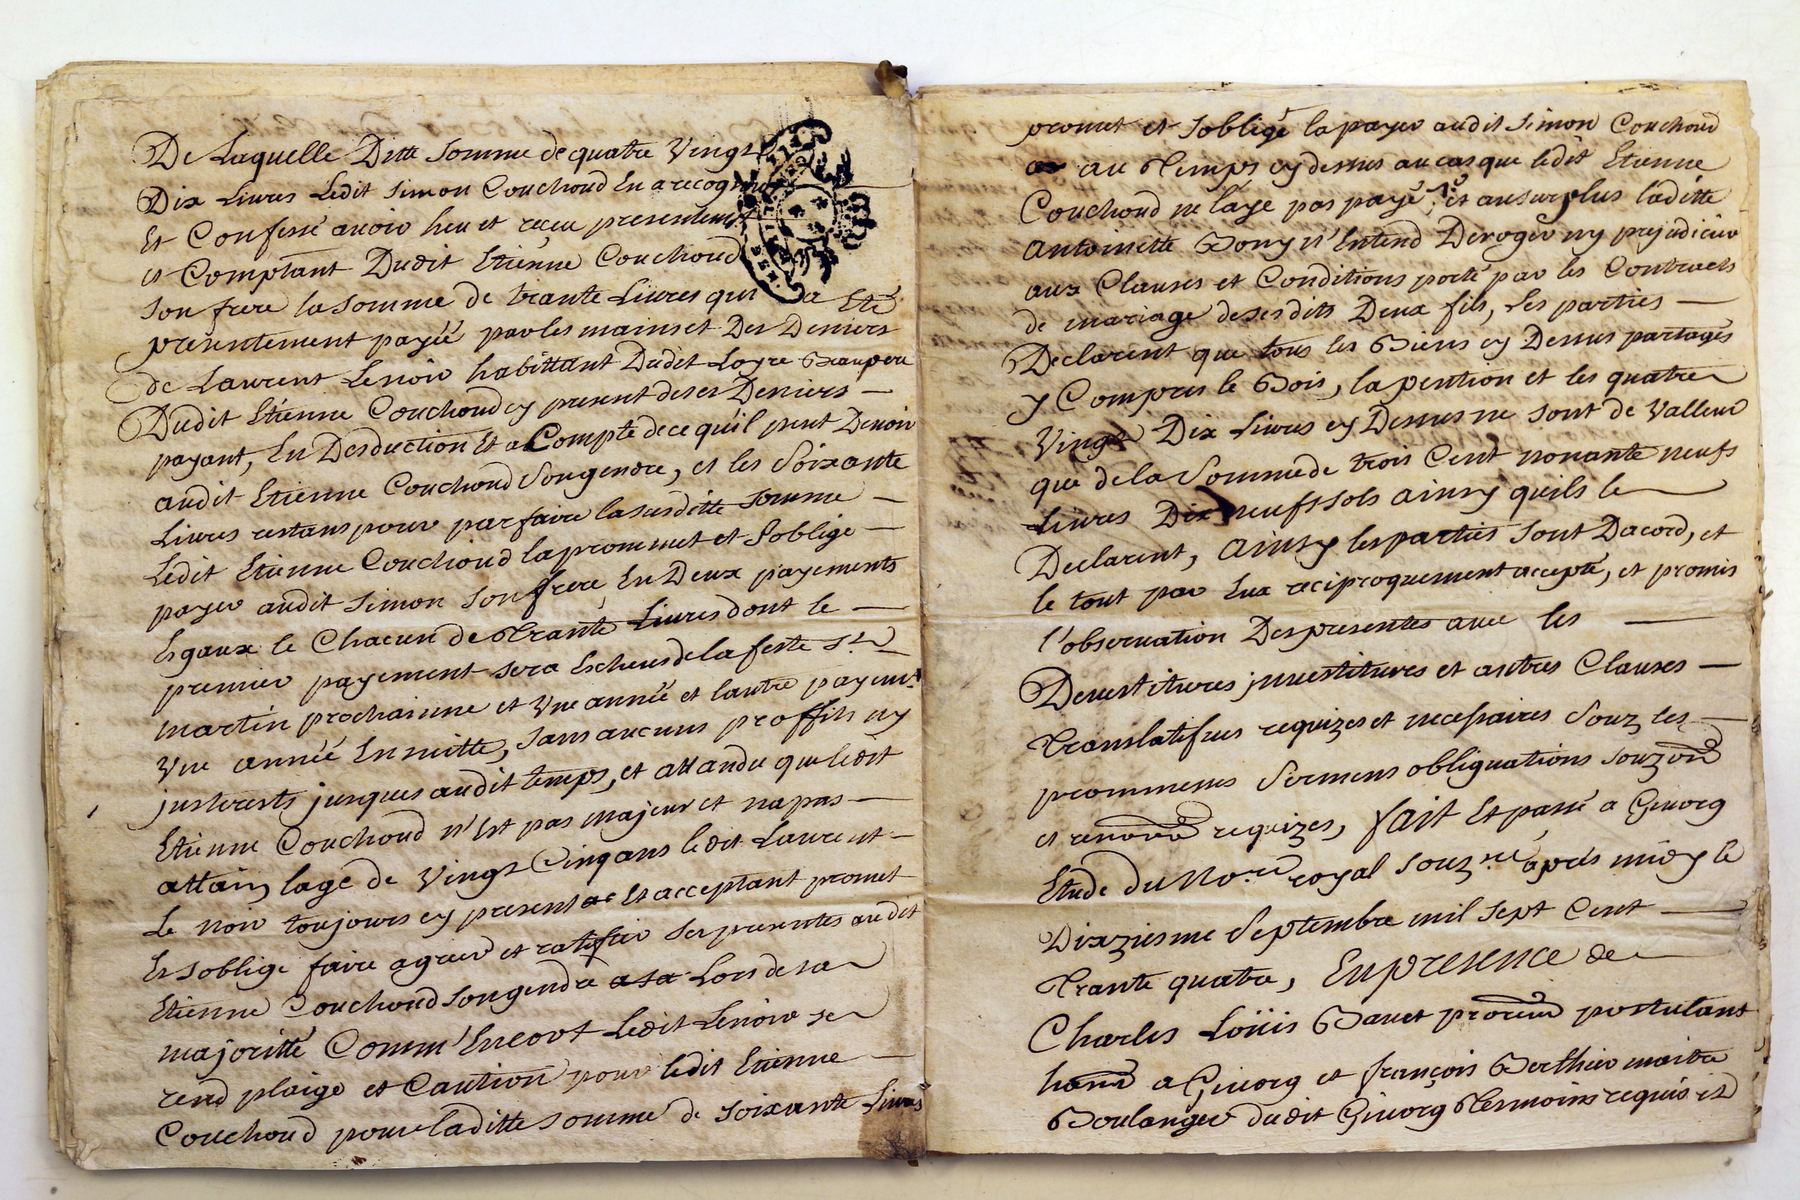 De Laquelle Ditte Somme de quatre Vingt
Dix Livres Ledit Simon Couchoud En a recognu
Et Confessé avoir heu et reçeu presentement
et Comptant Dudit Etienne Couchoud
son frere la somme de trante Livres qui a Eté
presentement payéé par les mains et Des Deniers
de Laurent Lenoir habittant Dudit Loyre Beaupere
Dudit Etienne Couchoud cy present de ses Deniers
payant, En Desduction Et a Compte de ce qu'il peut Devoir
audit Etienne Couchoud Son gendre, et les Soixante
Livres restans pour parfaire la susditte somme
Ledit Etienne Couchoud la prommet et s'oblige
payer audit Simon Son frere, En Deux payements
Esgaux le Chacun de Trante Livres dont le
premier payement sera Escheu de la feste St
martin prochainne et Une année et l'autre payemt
Une année En suitte, sans aucuns proffits ny
justerests jusques audit temps, et attandu que ledit
Etienne Couchoud n'Est pas majeur et na pas
attain lage de Vingt Cinq ans ledit Laurent
Le noir toujours cy present et Et acceptant promet
Et s'oblige faire agreer et ratiffier ses presentes audit
Etienne Couchoud son gendre a sa Lors de sa
majoritté Comm' Encort Ledit Lenoir se
rend plaige et Caution pour ledit Etienne
Couchoud pour laditte somme de soixante Livres
promet et s'oblige la payer audit Simon Couchoud
au Temps cy dessus au cas que ledit Etienne
Couchoud ne l'aye pas payé, et au surplus laditte
Antoinette Bony n'Entend Deroger ny prejudicier
aux Clauses et Conditions porté par les Contracts
de mariage de sesdits Deux fils, Les parties
Declarent que tous les Biens cy Dessus partagés
y Compris le Bois, la pention et les quatre
Vingt Dix Livres cy Dessus ne sont de Valleur
que de la Somme de trois Cent nonante neufs
Livres Dix neufs sols ainsy quils le
Declarent, Ainsy les parties sont Dacord, et
le tout par Eux reciproquement accepté, et promis
l'observation Des presentes avec les
Devestitures jnvestitures et autres Clauses
Translatifves requizes et necessaires Souz les
prommesses Sermens obliguations souzons
et renons requizes, fait Et passé a Givorg
Etude du No.re royal souz.né après midy le
Dixziesme Septembre mil sept Cent
Trante quatre, En presence de
Charles Loüis Bauet procur postulant
hant a Givorg et françois Berthier maitre
Boulanger dudit Givorg Tesmoins requis et